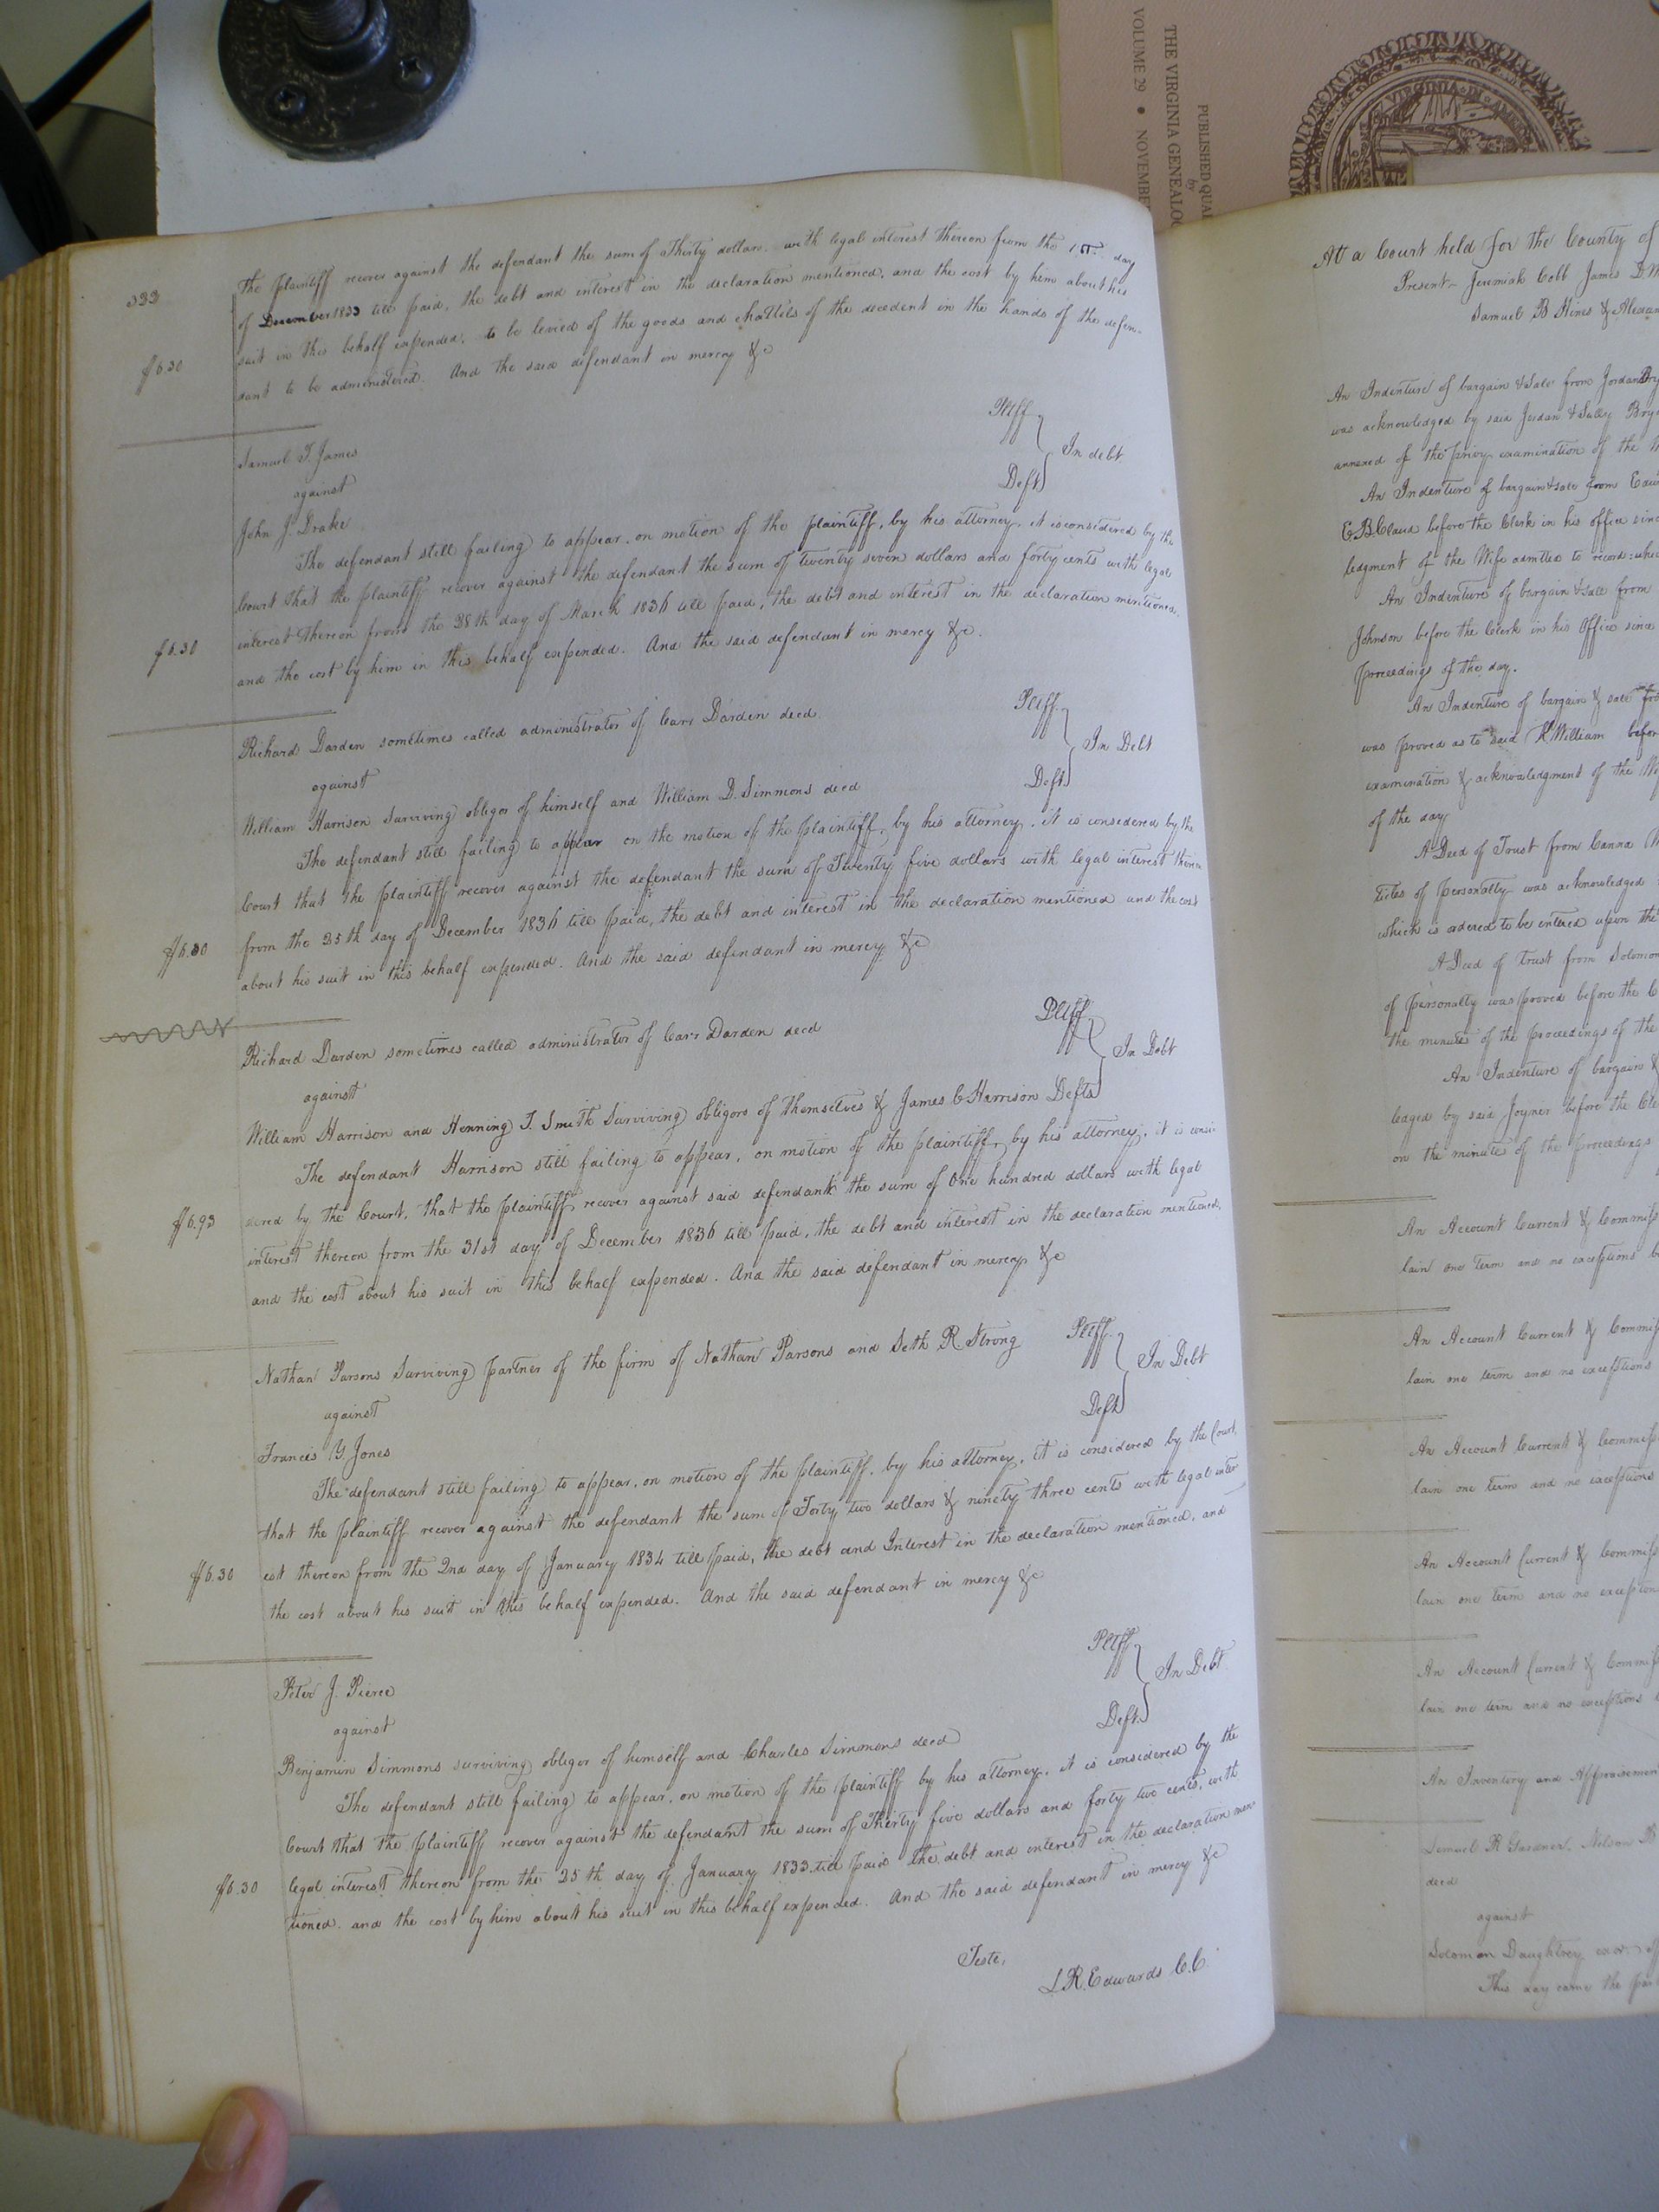 VOLUME 29 • NOVEMBE
THE VIRGINIA GENEALOG
PUBLISHED QUA
by
VIRGINIA · IN · AME
333
The plaintiff recover against the defendant the sum of Thirty dollars. with legal interest thereon from the 1st day
of December 1833 till paid, the debt and interest in the declaration mentioned, and the cost by him about his
suit in this behalf expended, to be levied of the goods and chattels of the decedent in the hands of the defen-
$6.30
dant to be administered. And the said defendant in mercy &c
Samuel T. James Pltff
against In debt.
John J. Drake Deft
The defendant still failing to appear, on motion of the plaintiff, by his attorney, it is considered by the
Court that the plaintiff recover against the defendant the sum of twenty seven dollars and forty cents with legal
interest thereon from the 28th day of March 1836 till paid, the debt and interest in the declaration mentioned.
$6.30
and the cost by him in this behalf expended. And the said defendant in mercy &c.
Richard Darden sometimes called administrator of Carr Darden decd Pltff.
against In Debt
William Harrison Surviving obligor of himself and William D. Simmons decd Deft
The defendant still failing to appear on the motion of the plaintiff, by his attorney, it is considered by the
Court that the plaintiff recover against the defendant the sum of Twenty five dollars with legal interest thereon
from the 25th day of December 1836 till paid, the debt and interest in the declaration mentioned and the cost
$6.30
about his suit in this behalf expended. And the said defendant in mercy &c
Richard Darden sometimes called administrator of Carr Darden decd Pltff
against In Debt
William Harrison and Henning T. Smith Surviving obligors of themselves & James C Harrison Defts
The defendant Harrison still failing to appear, on motion of the plaintiff, by his attorney, it is consi-
dered by the Court, that the plaintiff recover against said defendant the sum of One hundred dollars with legal
$6.93
interest thereon from the 31st day of December 1836 till paid, the debt and interest in the declaration mentioned,
and the cost about his suit in this behalf expended. And the said defendant in mercy &c
Nathan Parsons Surviving partner of the firm of Nathan Parsons and Seth R Strong Pltff.
against In Debt
Francis Y. Jones Deft
The defendant still failing to appear, on motion of the plaintiff, by his attorney, it is considered by the Court,
that the plaintiff recover against the defendant the sum of Forty two dollars & ninety three cents with legal inter
est thereon from the 2nd day of January 1834 till paid, the debt and Interest in the declaration mentioned, and
$6.30
the cost about his suit in this behalf expended. And the said defendant in mercy &c
Peter J. Pierce Pltff
against In Debt
Benjamin Simmons surviving obligor of himself and Charles Simmons decd Deft.
The defendant still failing to appear, on motion of the plaintiff by his attorney, it is considered by the
Court that the plaintiff recover against the defendant the sum of Thirty five dollars and forty two cents, with
legal interest thereon from the 25th day of January 1833 till paid the debt and interest in the declaration men
$6.30
tioned. and the cost by him about his suit in this behalf expended. And the said defendant in mercy &c
Teste,
L R. Edwards C. C.
At a Court held for the County of
Present Jeremiah Cobb James D
Samuel B Hines & Alexan
An Indenture of bargain & sale from Jordan Bry
was acknowledged by said Jordan & Sally Bry
annexed of the privy examination of the
An Indenture of bargain & sale from Edw
E. B. Claud before the Clerk in his office sinc
ledgment of the Wife admitted to record: whi
An Indenture of bargain & sale from
Johnson before the Clerk in his Office since
proceedings of the day.
An Indenture of bargain & sale fro
was proved as to said K William befor
examination & acknowledgment of the
of the day
A Deed of Trust from Canna
ticles of personalty was acknowledged
which is ordered to be entered upon the
A Deed of Trust from Solomon
of personalty was proved before the C
the minutes of the proceedings of the
An Indenture of bargain &
ledged by said Joyner before the Cle
on the minutes of the proceedings
An Account Current & Commiss
lain one term and no exceptions b
An Account Current & Commiss
lain one term and no exceptions
An Account Current & Commiss
lain one term and no exceptions
An Account Current & Commiss
lain one term and no exception
An Account Current & Commiss
lain one term and no exceptions
An Inventory and Appraisemen
Lemuel R Gardner, Nelson B
decd
against
Solomon Daughtrey
This day came the par